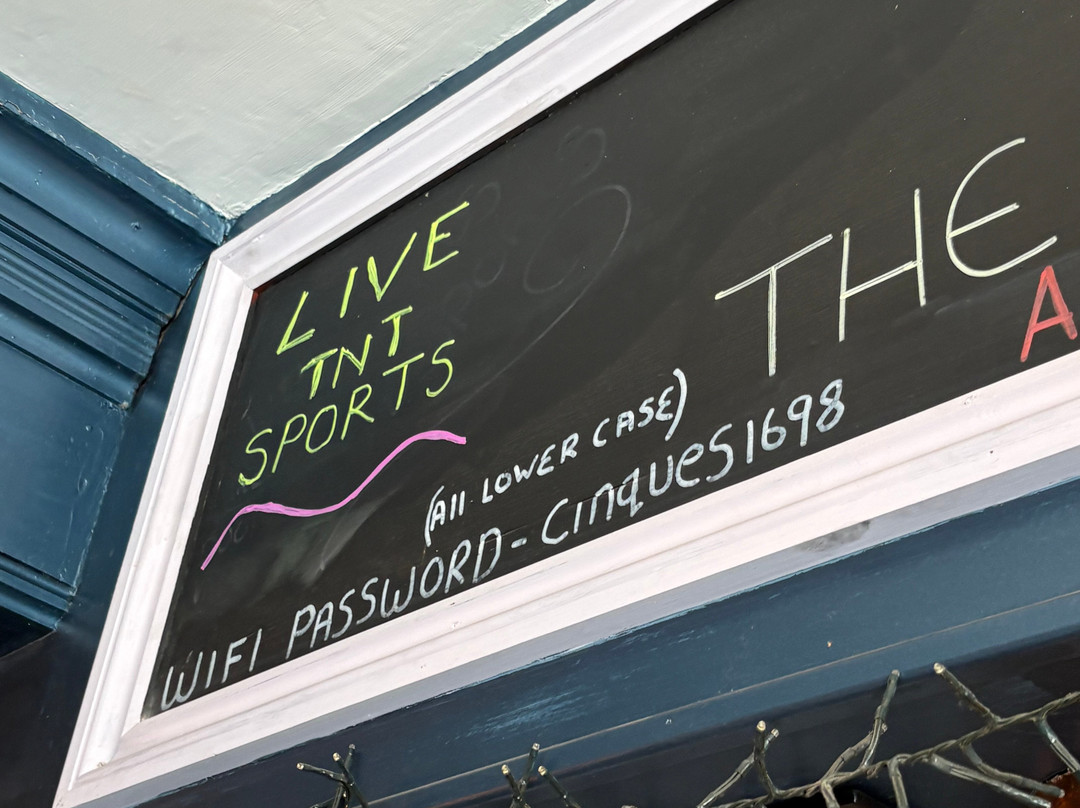 LIVE
TNT
SPORTS
THE
A
(All LOWER CASE)
WIFI PASSWORD - cinques1698